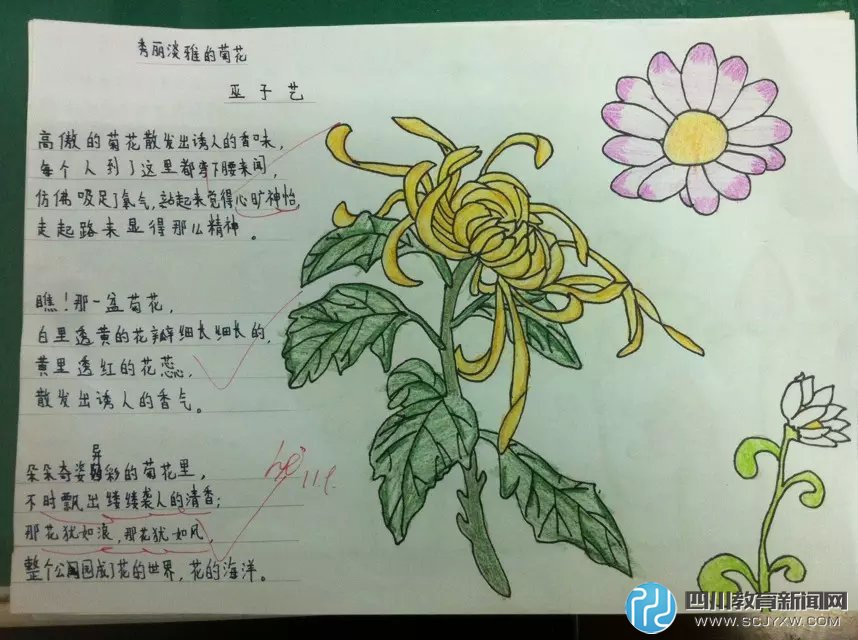 秀丽淡雅的菊花
巫子艺
高傲的菊花散发出诱人的香味，
每个人到了这里都弯下腰来闻，
仿佛吸足了氧气，站起来觉得心旷神怡，
走起路来显得那么精神。
瞧！那一盆菊花，
白里透黄的花瓣细长细长的，
黄里透红的花蕊，
散发出诱人的香气。
朵朵奇姿异彩的菊花里，
不时飘出缕缕袭人的清香；
那花犹如浪，那花犹如风，
整个公园成了花的世界，花的海洋。
四川教育新闻网
WWW.SCJYXW.COM